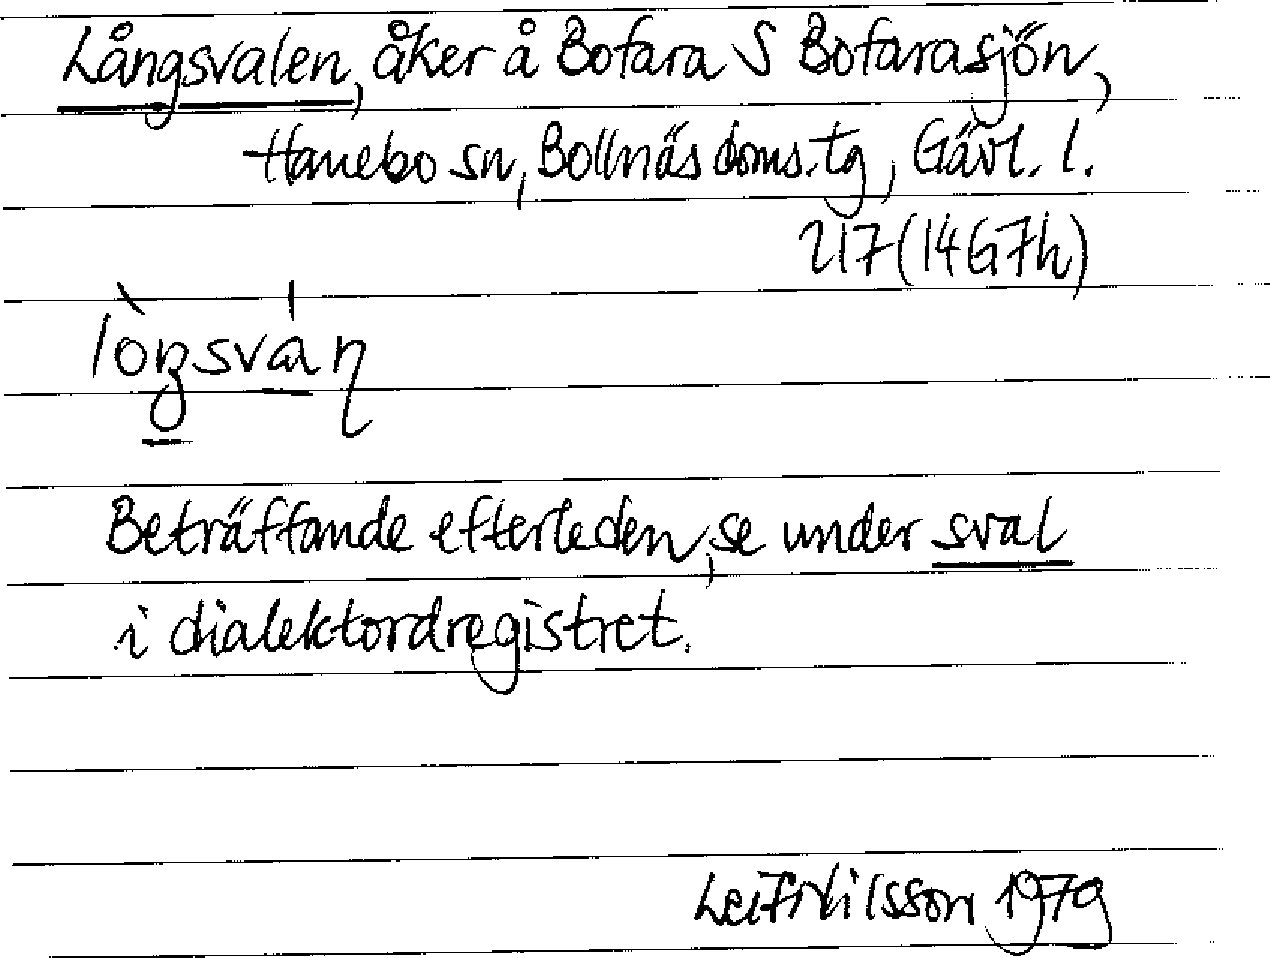 Långsvalen, åker å Bofara S Bofarasjön,
Hanebo sn, Bollnäs doms.tg, Gävl. l.
217 (14G7h)
Beträffande efterleden, se under sval
i dialektordregistret.
Leif Nilsson 1979